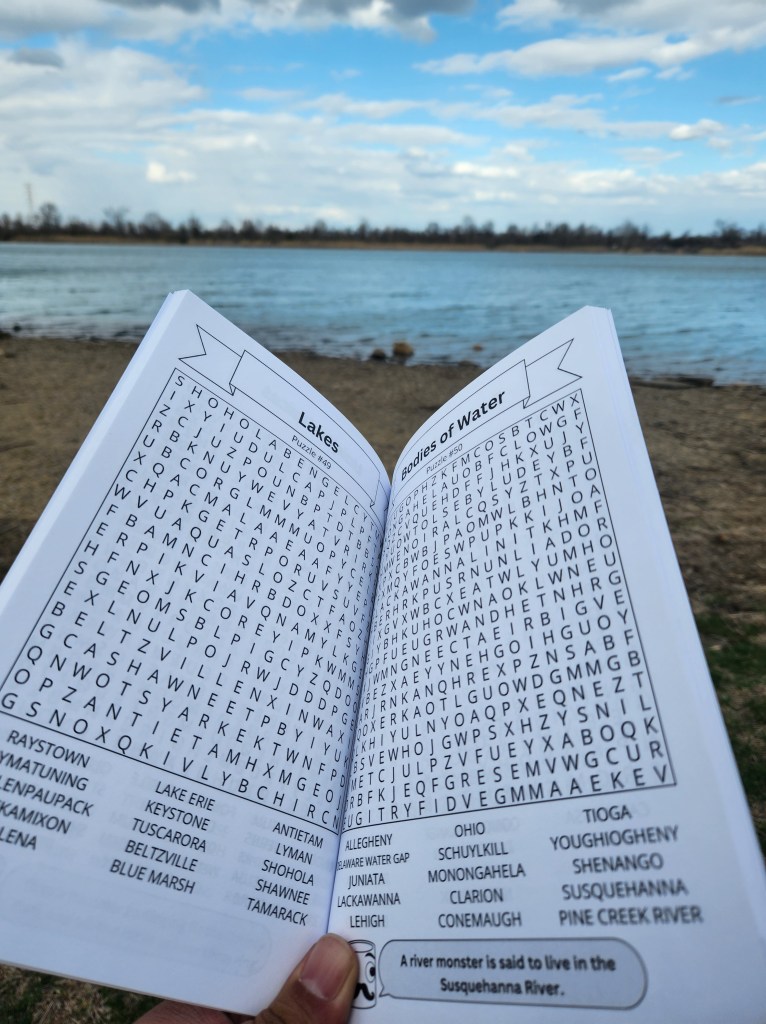 Lakes
Puzzle #49
S H O H O L A B E N G E L C
I X Y I U D U L C A P J P L
Z C J U Z P O U N B P T
R B K N U Y W E V Y A T D R B
U B C O R G L M M M U O P Y
X Q A C M A L A A E A A F Y
C H P K G E T R P O R U V S U V
W V U A Q U A S L O Z C T F A
F B A M N C I H R B D O X X F S
E R P I K V I A V Q N A M Y L K G
H F N X J K C O R E Y I P K W M N
S G E O M S B L P I G C Y Z Q D O
E X L N U L P O J R W J D D D P G
B E L T Z V I L L E N X I N W A Y
G C A S H A W N E E T P B Y I Y I
Q N W O T S Y A R K E K T W N F P
O P Z A N T I E T A M H X M G E O J
G S N O X Q K I V L Y B C H I R C N
RAYSTOWN
YMATUNING
LENPAUPACK
KAMIXON
LENA
LAKE ERIE
KEYSTONE
TUSCARORA
BELTZVILLE
BLUE MARSH
ANTIETAM
LYMAN
SHOHOLA
SHAWNEE
TAMARACK
Bodies of Water
Puzzle #50
K F M C O S B T C W X
A U O B F C L O W G F
H D F F J H K X U J Y
S E B Y L U D E Y B F
A L C Q S Y Z T X P U
P A O M W L B H N T O
E S W P U P K K I J O A
W A N N A L I N I T K H M F
P U S R N U N L I A D O R
W B C X E A T W L Y U M H O
K U H O C W N A O K L W N E U
E U G R W A N D H E T N H R G
N G N E E C T A E I R B I G V E
X A E Y Y N E H G O I H G U O Y
N K A N Q H R E X P Z N S A B F
E R K A O T L G U O W D G M M G B
H I Y U L N Y O A Q P X E Q N E Z T
S V E W H O J G W P S X H Z Y S N I L
M E T C J U L P Z V F U E Y X A B O Q K
R B F K J E Q F G R E S E M V W G C U R
U G I T R Y F I D V E G M M A A E K E V
ALLEGHENY
DELAWARE WATER GAP
JUNIATA
LACKAWANNA
LEHIGH
OHIO
SCHUYLKILL
MONONGAHELA
CLARION
CONEMAUGH
TIOGA
YOUGHIOGHENY
SHENANGO
SUSQUEHANNA
PINE CREEK RIVER
A river monster is said to live in the
Susquehanna River.